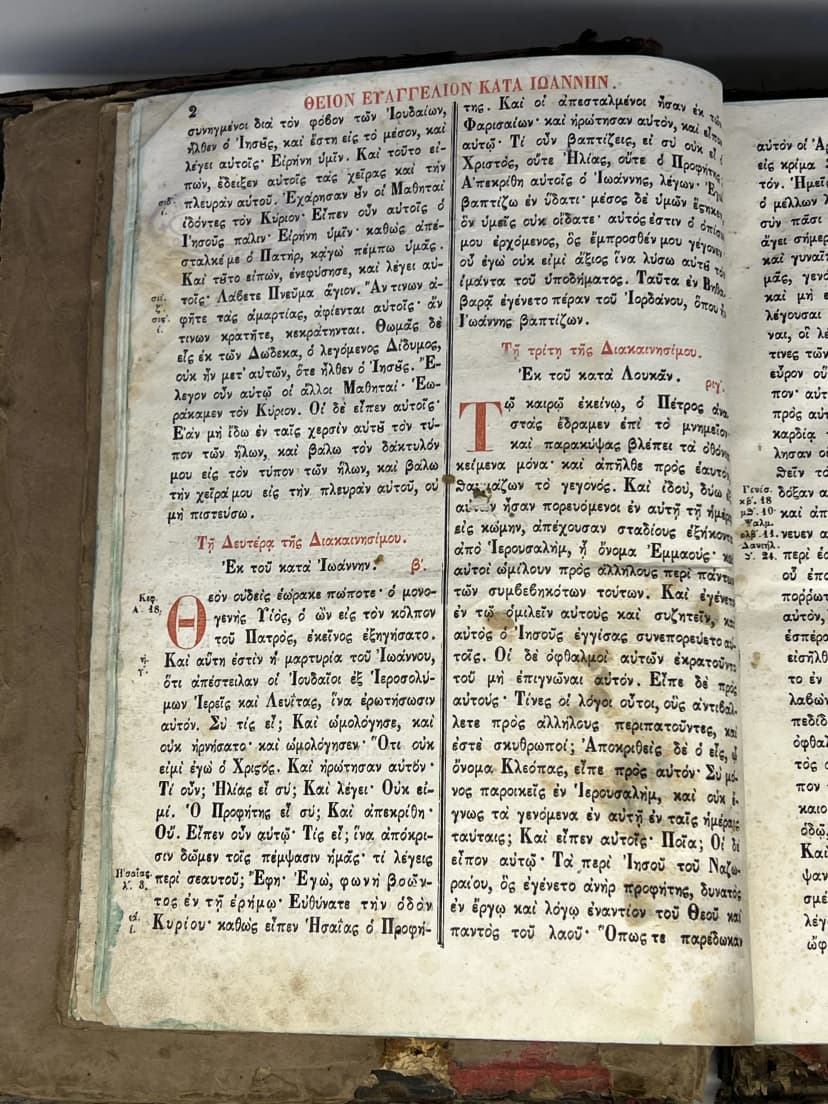 2
ΘΕΙΟΝ ΕΥΑΓΓΕΛΙΟΝ ΚΑΤΑ ΙΩΑΝΝΗΝ.
συνηγμένοι διὰ τὸν φόβον τῶν Ἰουδαίων,
ἦλθεν ὁ Ἰησȣς, καὶ ἔστη εἰς τὸ μέσον, καὶ
λέγει αὐτοῖς· Εἰρήνη ὑμῖν. Καὶ τοῦτο εἰ-
πών, ἔδειξεν αὐτοῖς τὰς χεῖρας καὶ τὴν
πλευρὰν αὐτοῦ. Ἐχάρησαν ȣν οἱ Μαθηταὶ
ἰδόντες τὸν Κύριον· Εἶπεν οὖν αὐτοῖς ὁ
Ἰησοῦς πάλιν· Εἰρήνη ὑμῖν· καθὼς ἀπέ-
σταλκέ με ὁ Πατήρ, κᾀγὼ πέμπω ὑμᾶς.
Καὶ τȣτο εἰπών, ἐνεφύσησε, καὶ λέγει αὐ-
τοῖς· Λάβετε Πνεῦμα ἅγιον. Ἄν τινων ἀ-
φῆτε τὰς ἁμαρτίας, ἀφίενται αὐτοῖς· ἄν
τινων κρατῆτε, κεκράτηνται. Θωμᾶς δὲ
εἷς ἐκ τῶν Δώδεκα, ὁ λεγόμενος Δίδυμος,
οὐκ ἦν μετ' αὐτῶν, ὅτε ἦλθεν ὁ Ἰησȣς. Ἔ-
λεγον οὖν αὐτῷ οἱ ἄλλοι Μαθηταί· Ἑω-
ράκαμεν τὸν Κύριον. Ὁ δὲ εἶπεν αὐτοῖς·
Ἐὰν μὴ ἴδω ἐν ταῖς χερσὶν αὐτȣ τὸν τύ-
πον τῶν ἥλων, καὶ βάλω τὸν δάκτυλόν
μου εἰς τὸν τύπον τῶν ἥλων, καὶ βάλω
τὴν χεῖρά μου εἰς τὴν πλευρὰν αὐτοῦ, οὐ
μὴ πιστεύσω.
Τῇ Δευτέρᾳ τῆς Διακαινησίμου.
Ἐκ τοῦ κατὰ Ἰωάννην. β'.
Κεφ.
Α'. 18,
Θεὸν οὐδεὶς ἑώρακε πώποτε· ὁ μονο-
γενὴς Υἱός, ὁ ὢν εἰς τὸν κόλπον
τοῦ Πατρός, ἐκεῖνος ἐξηγήσατο.
Καὶ αὕτη ἐστὶν ἡ μαρτυρία τοῦ Ἰωάννου,
ὅτι ἀπέστειλαν οἱ Ἰουδαῖοι ἐξ Ἱεροσολύ-
μων Ἱερεῖς καὶ Λευΐτας, ἵνα ἐρωτήσωσιν
αὐτόν. Σὺ τίς εἶ; Καὶ ὡμολόγησε, καὶ
οὐκ ἠρνήσατο· καὶ ὡμολόγησεν· Ὅτι οὐκ
εἰμὶ ἐγὼ ὁ Χριστός. Καὶ ἠρώτησαν αὐτόν·
Τί οὖν; Ἠλίας εἶ σύ; Καὶ λέγει· Οὐκ εἰ-
μί. Ὁ Προφήτης εἶ σύ; Καὶ ἀπεκρίθη·
Οὔ. Εἶπον οὖν αὐτῷ· Τίς εἶ; ἵνα ἀπόκρι-
σιν δῶμεν τοῖς πέμψασιν ἡμᾶς· τί λέγεις
Ἡσαΐας
περὶ σεαυτοῦ; Ἔφη· Ἐγώ, φωνὴ βοῶν-
τος ἐν τῇ ἐρήμῳ· Εὐθύνατε τὴν ὁδὸν
Κυρίου· καθὼς εἶπεν Ἡσαΐας ὁ Προφή-
της. Καὶ οἱ ἀπεσταλμένοι ἦσαν ἐκ τῶν
Φαρισαίων· καὶ ἠρώτησαν αὐτόν, καὶ εἶπον
αὐτῷ· Τί οὖν βαπτίζεις, εἰ σὺ οὐκ εἶ ὁ
Χριστός, οὔτε Ἠλίας, οὔτε ὁ Προφήτης;
Ἀπεκρίθη αὐτοῖς ὁ Ἰωάννης, λέγων· Ἐγὼ
βαπτίζω ἐν ὕδατι· μέσος δὲ ὑμῶν ἕστηκεν
ὃν ὑμεῖς οὐκ οἴδατε· αὐτός ἐστιν ὁ ὀπίσω
μου ἐρχόμενος, ὃς ἔμπροσθέν μου γέγονεν·
οὗ ἐγὼ οὐκ εἰμὶ ἄξιος ἵνα λύσω αὐτȣ τὸν
ἱμάντα τοῦ ὑποδήματος. Ταῦτα ἐν Βηθα-
βαρᾷ ἐγένετο πέραν τοῦ Ἰορδάνου, ὅπου ἦν
Ἰωάννης βαπτίζων.
Τῇ τρίτῃ τῆς Διακαινησίμου.
Ἐκ τοῦ κατὰ Λουκᾶν. ριγ'.
Τῷ καιρῷ ἐκείνῳ, ὁ Πέτρος ἀνα-
στὰς ἔδραμεν ἐπὶ τὸ μνημεῖον·
καὶ παρακύψας βλέπει τὰ ὀθόνια
κείμενα μόνα· καὶ ἀπῆλθε πρὸς ἑαυτὸν
θαυμάζων τὸ γεγονός. Καὶ ἰδού, δύω ἐξ
αὐτῶν ἦσαν πορευόμενοι ἐν αὐτῇ τῇ ἡμέρᾳ
εἰς κώμην, ἀπέχουσαν σταδίους ἑξήκοντα
ἀπὸ Ἱερουσαλήμ, ᾗ ὄνομα Ἐμμαούς· καὶ
αὐτοὶ ὡμίλουν πρὸς ἀλλήλους περὶ πάντων
τῶν συμβεβηκότων τούτων. Καὶ ἐγένετο
ἐν τῷ ὁμιλεῖν αὐτοὺς καὶ συζητεῖν, καὶ
αὐτὸς ὁ Ἰησοῦς ἐγγίσας συνεπορεύετο αὐ-
τοῖς. Οἱ δὲ ὀφθαλμοὶ αὐτῶν ἐκρατοῦντο
τοῦ μὴ ἐπιγνῶναι αὐτόν. Εἶπε δὲ πρὸς
αὐτούς· Τίνες οἱ λόγοι οὗτοι, οὓς ἀντιβάλ-
λετε πρὸς ἀλλήλους περιπατοῦντες, καί
ἐστε σκυθρωποί; Ἀποκριθεὶς δὲ ὁ εἷς, ᾧ
ὄνομα Κλεόπας, εἶπε πρὸς αὐτόν· Σὺ μό-
νος παροικεῖς ἐν Ἱερουσαλήμ, καὶ οὐκ ἔ-
γνως τὰ γενόμενα ἐν αὐτῇ ἐν ταῖς ἡμέραις
ταύταις; Καὶ εἶπεν αὐτοῖς· Ποῖα; Οἱ δὲ
εἶπον αὐτῷ· Τὰ περὶ Ἰησοῦ τοῦ Ναζω-
ραίου, ὃς ἐγένετο ἀνὴρ προφήτης, δυνατὸς
ἐν ἔργῳ καὶ λόγῳ ἐναντίον τοῦ Θεοῦ καὶ
παντὸς τοῦ λαοῦ· Ὅπως τε παρέδωκαν
Γενέσ.
κβ'. 18
μθ'. 10·
Ψαλμ.
ρλβ'. 11.
Δανιήλ.
θ'. 24.
αὐτὸν οἱ
εἰς κρίμα
τόν. Ἡμεῖς
ὁ μέλλων
σὺν πᾶσι
ἄγει σήμερ
καὶ γυναῖ
μᾶς, γενό
καὶ μὴ
λέγουσαι
ναι, οἱ
τινες τῶν
εὗρον
πον· αὐτ
πρὸς αὐτ
καρδίᾳ
λησαν οἱ
θεῖν τὸ
δόξαν
καὶ ἀπ
νευεν
περὶ
οὗ
πορρωτ
αὐτόν,
ἑσπέρ
εἰσῆλθ
το ἐν
λαβὼν
πεδίδ
ὀφθαλ
τὸς
πον
καιο
ὁδῷ
Καὶ